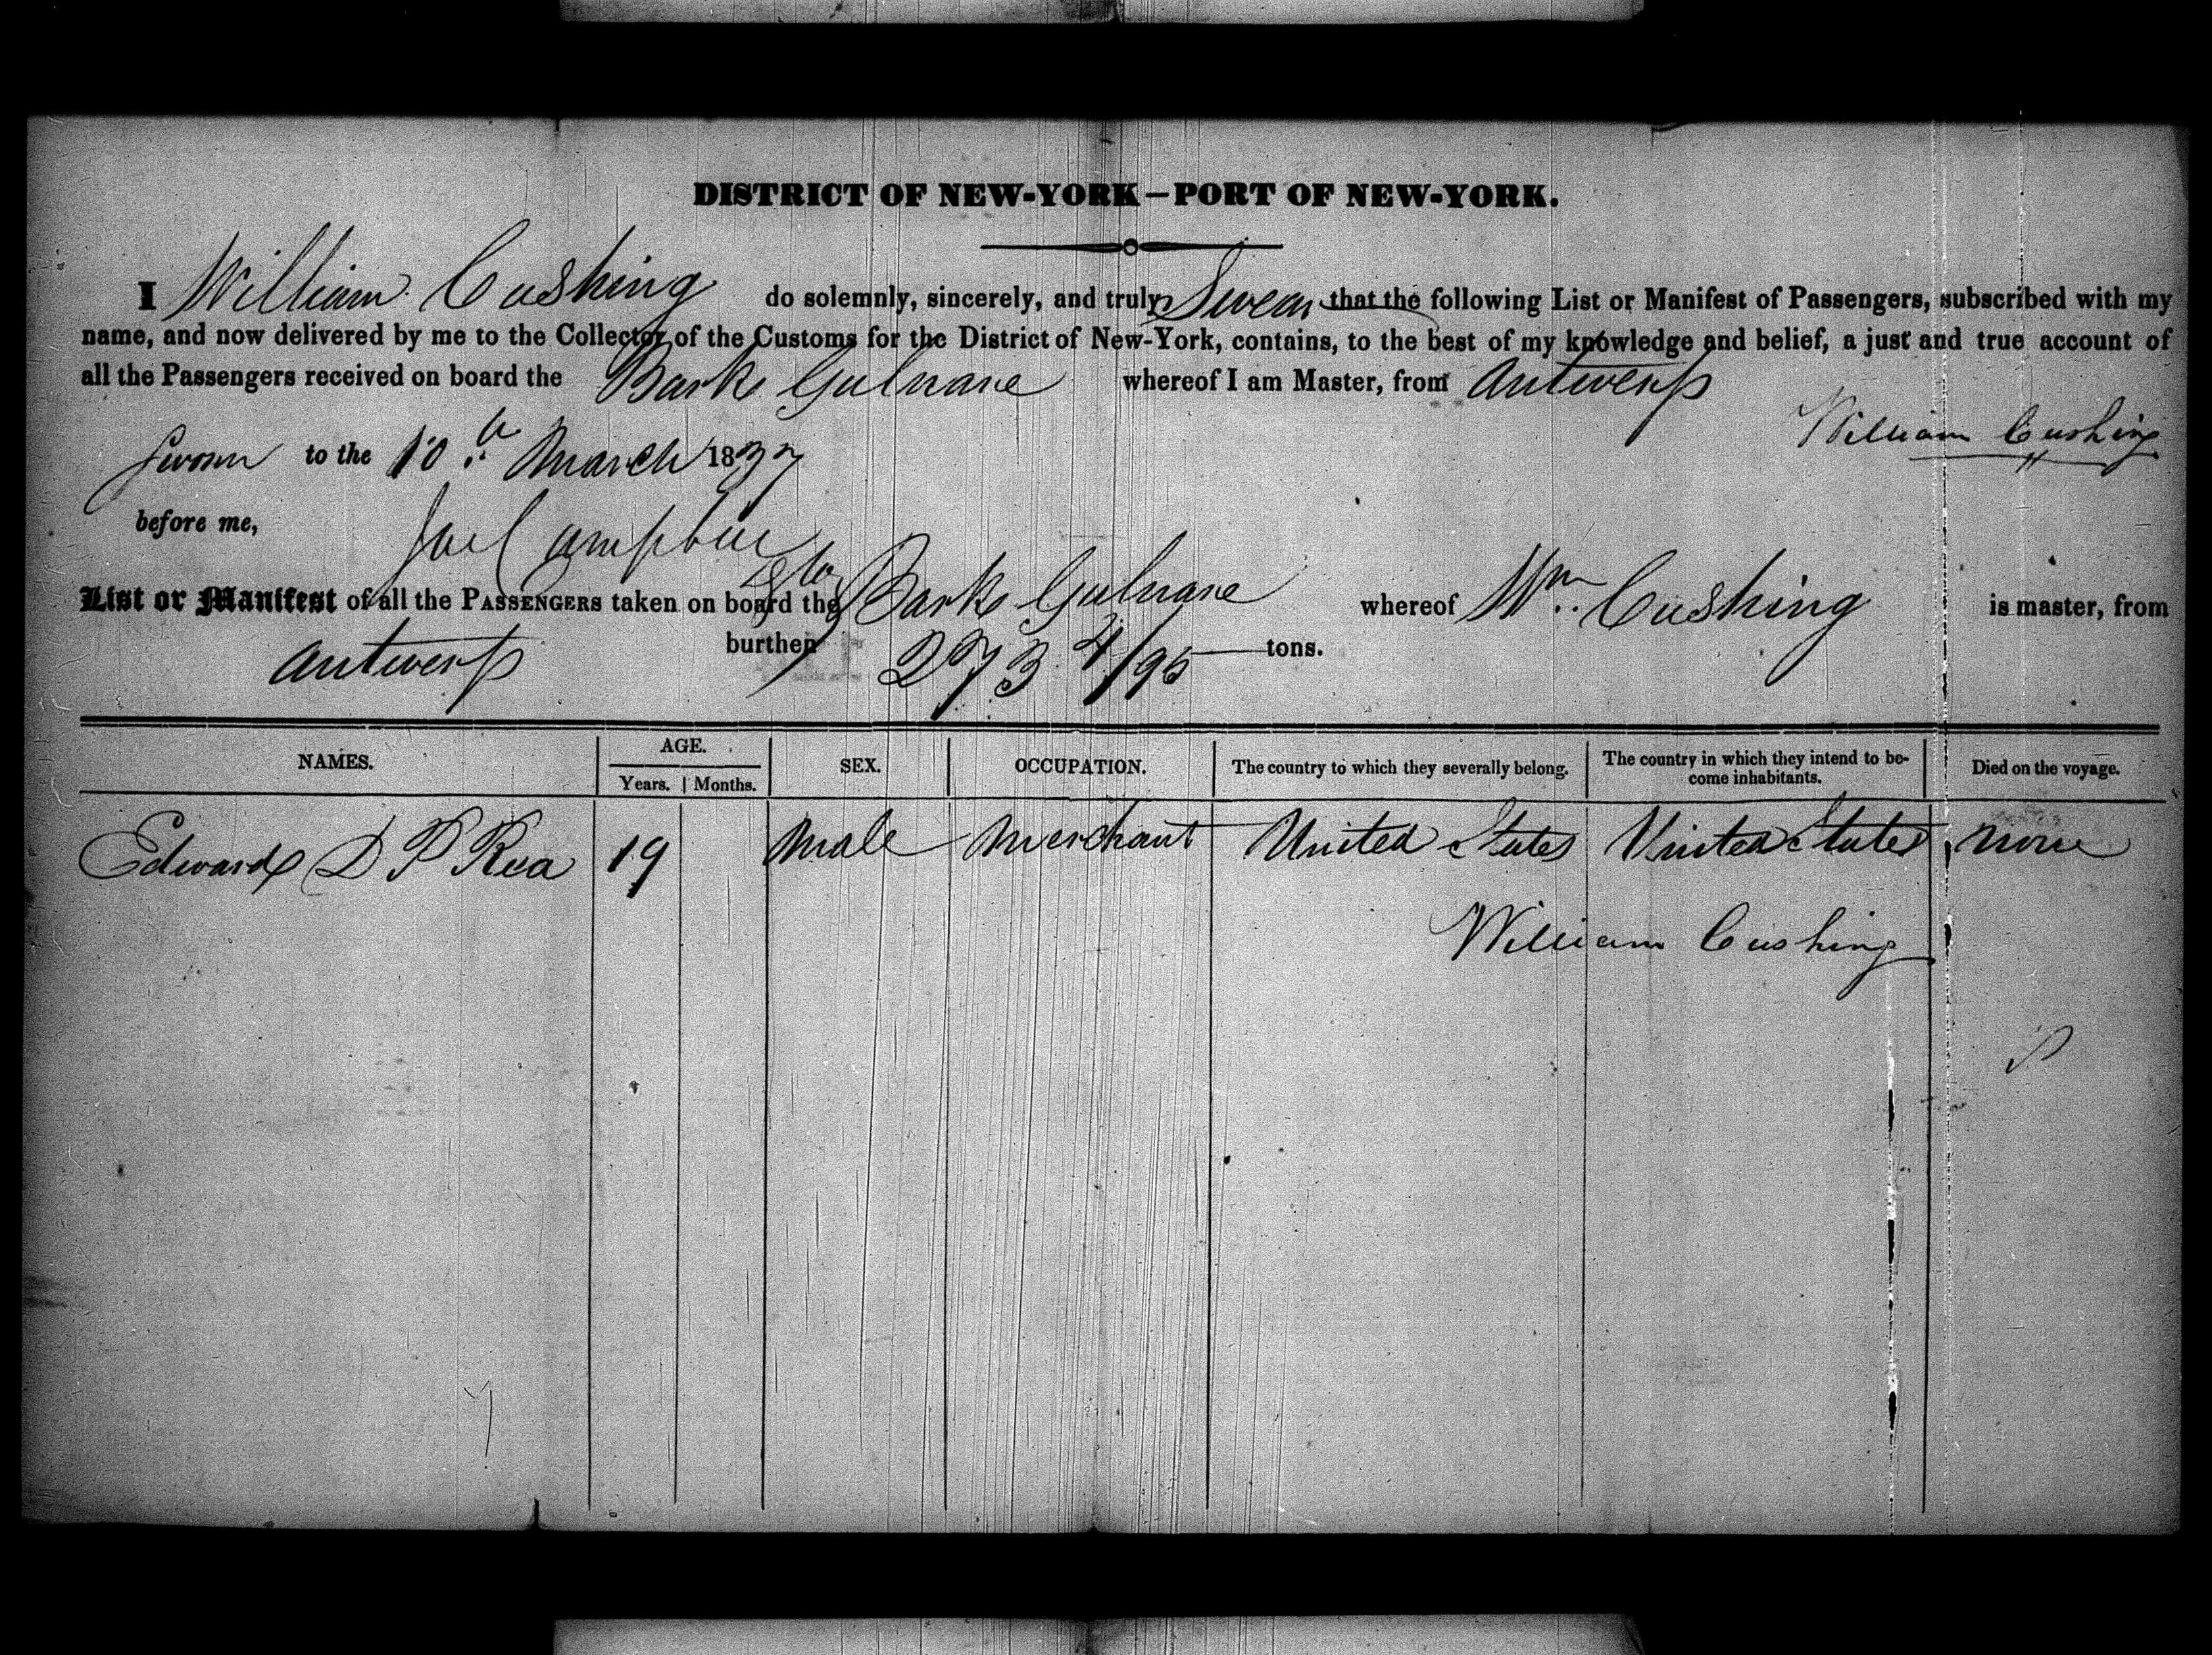 DISTRICT OF NEW-YORK—PORT OF NEW-YORK.
I William Cushing do solemnly, sincerely, and truly Swear that the following List or Manifest of Passengers, subscribed with my
name, and now delivered by me to the Collector of the Customs for the District of New-York, contains, to the best of my knowledge and belief, a just and true account of
all the Passengers received on board the Bark Gulnare whereof I am Master, from Antwerp
William Cushing
Sworn to the 10th March 1837
before me,
List or Manifest of all the PASSENGERS taken on board the Bark Gulnare whereof Wm. Cushing is master, from
Antwerp burthen 273 4/95 tons.
NAMES. AGE. Years. Months. SEX. OCCUPATION. The country to which they severally belong. The country in which they intend to be-come inhabitants. Died on the voyage.
Edward D P Rea 19 Male Merchant United States United States None
William Cushing